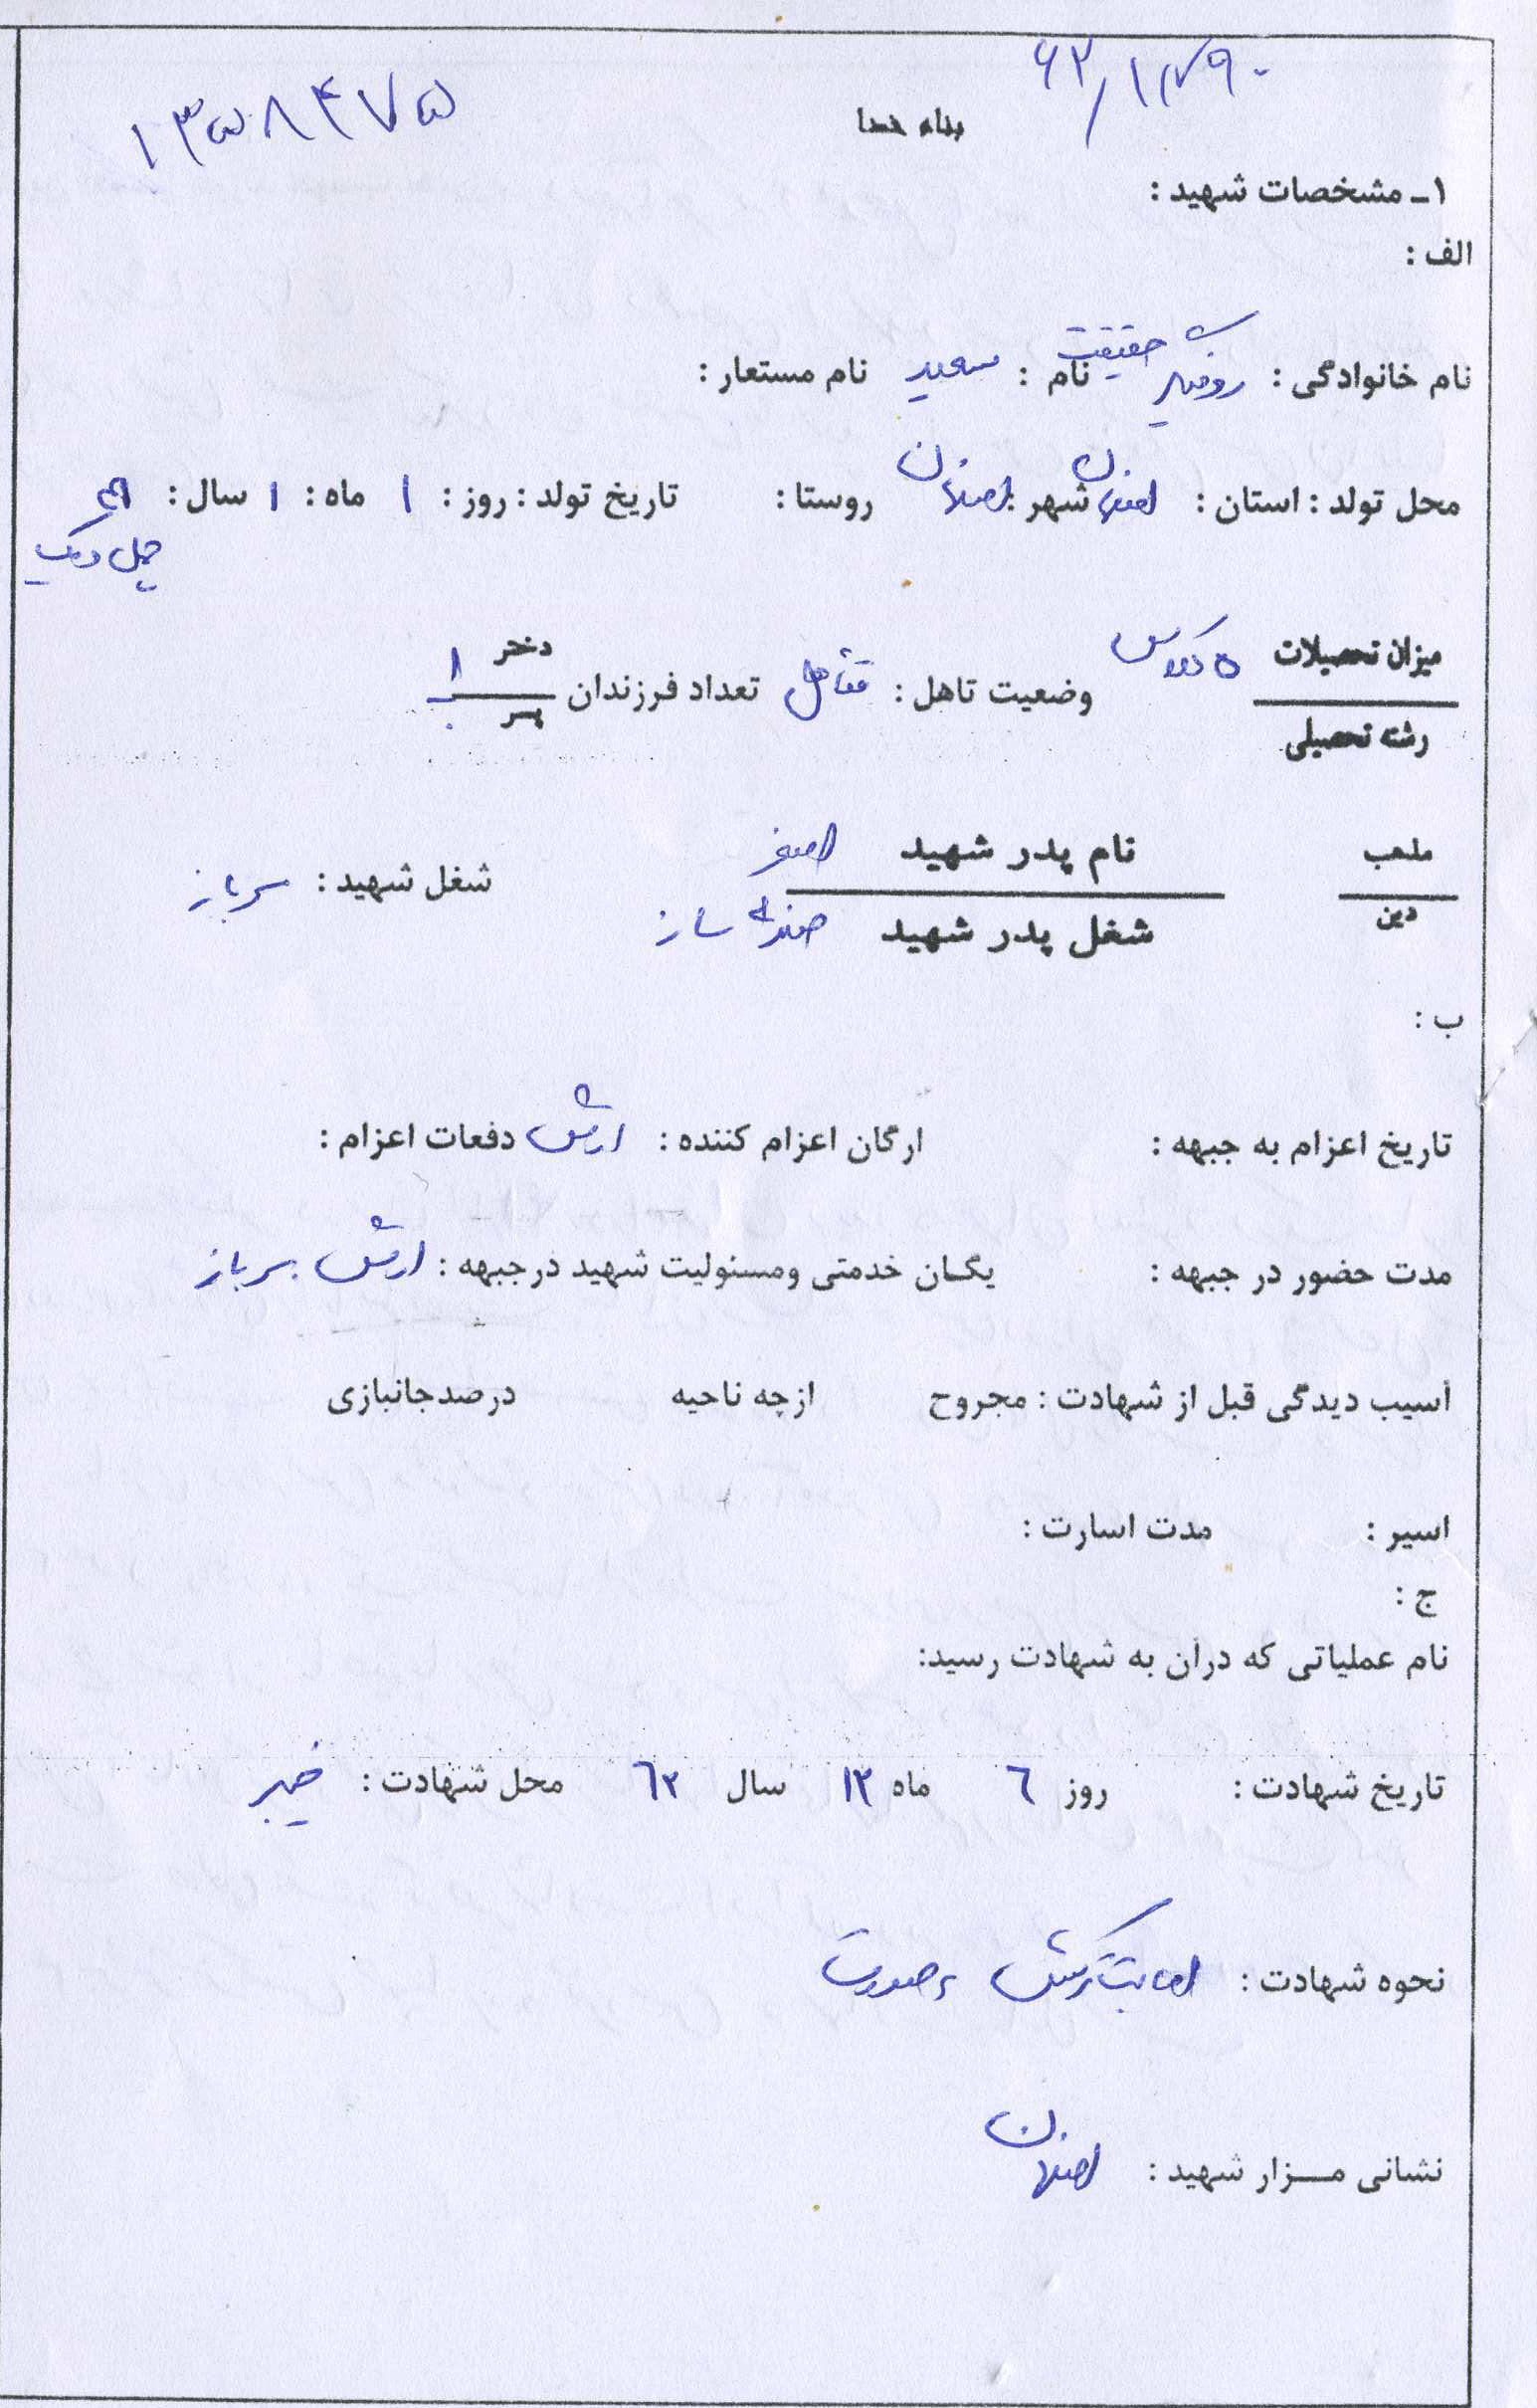 ۶۲/۱۱۷۹۰
۱۳۵۸۴۷۵
بنام خدا
۱ـ مشخصات شهید :
الف :
نام خانوادگی : حقیقت نام : سعید نام مستعار :
محل تولد : استان : اصفهان شهر : اصفهان روستا : تاریخ تولد : روز : ۱ ماه : ۱ سال : ۴۱
چهل و یک
میزان تحصیلات ۵ کلاس
رشته تحصیلی
وضعیت تاهل : متاهل تعداد فرزندان دختر ۱
پسر ۰
مذهب
دین
نام پدر شهید اصغر
شغل پدر شهید صندلی ساز
شغل شهید : سرباز
ب :
تاریخ اعزام به جبهه : ارگان اعزام کننده : ارتش دفعات اعزام :
مدت حضور در جبهه : یگان خدمتی ومسئولیت شهید درجبهه : ارتش . سرباز
آسیب دیدگی قبل از شهادت : مجروح ازچه ناحیه درصدجانبازی
اسیر : مدت اسارت :
ج :
نام عملیاتی که درآن به شهادت رسید:
تاریخ شهادت : روز ٦ ماه ۱۲ سال ٦۲ محل شهادت : خیبر
نحوه شهادت : اصابت ترکش بصورت
نشانی مـــزار شهید : اصفهان